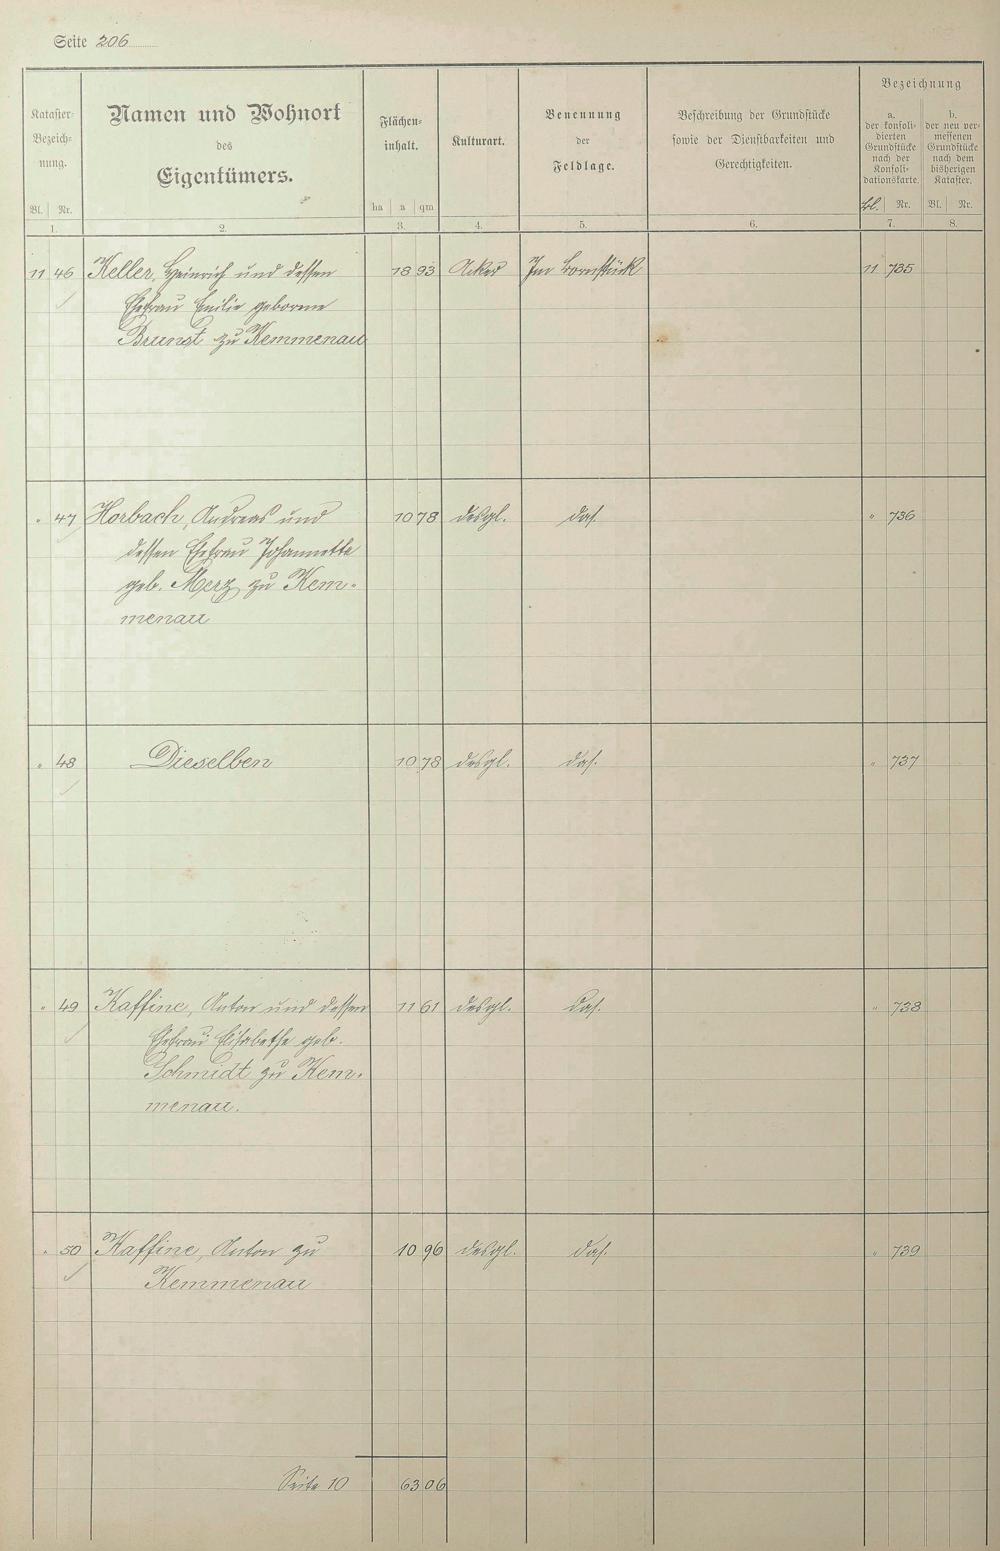 Seite 206
Kataster-
Bezeich-
nung.
Bl. Nr.
1.
Namen und Wohnort
des
Eigentümers.
2.
Flächen-
inhalt.
ha a qm
3.
Kulturart.
4.
Benennung
der
Feldlage.
5.
Beschreibung der Grundstücke
sowie der Dienstbarkeiten und
Gerechtigkeiten.
6.
Bezeichnung
a.
der konsoli-
dierten
Grundstücke
nach der
Konsoli-
dationskarte.
Bl. Nr.
7.
b.
der neu ver-
messenen
Grundstücke
nach dem
bisherigen
Kataster.
Bl. Nr.
8.
11 46 Keller, Heinrich und dessen 18 93 Acker Im Bornstück 11 735
Ehefrau Emilie geborne
Brunst zu Kemmenau
" 47 Horbach, Andreas und 10 78 desgl. das. " 736
dessen Ehefrau Johannette
geb. Merz zu Kem-
menau
" 48 Dieselben 10 78 desgl. das. " 737
" 49 Kaffine, Anton und dessen 11 61 desgl. das. " 738
Ehefrau Elisabethe geb.
Schmidt zu Kem-
menau.
" 50 Kaffine, Anton zu 10 96 desgl. das. " 739
Kemmenau
Seite 10 63 06